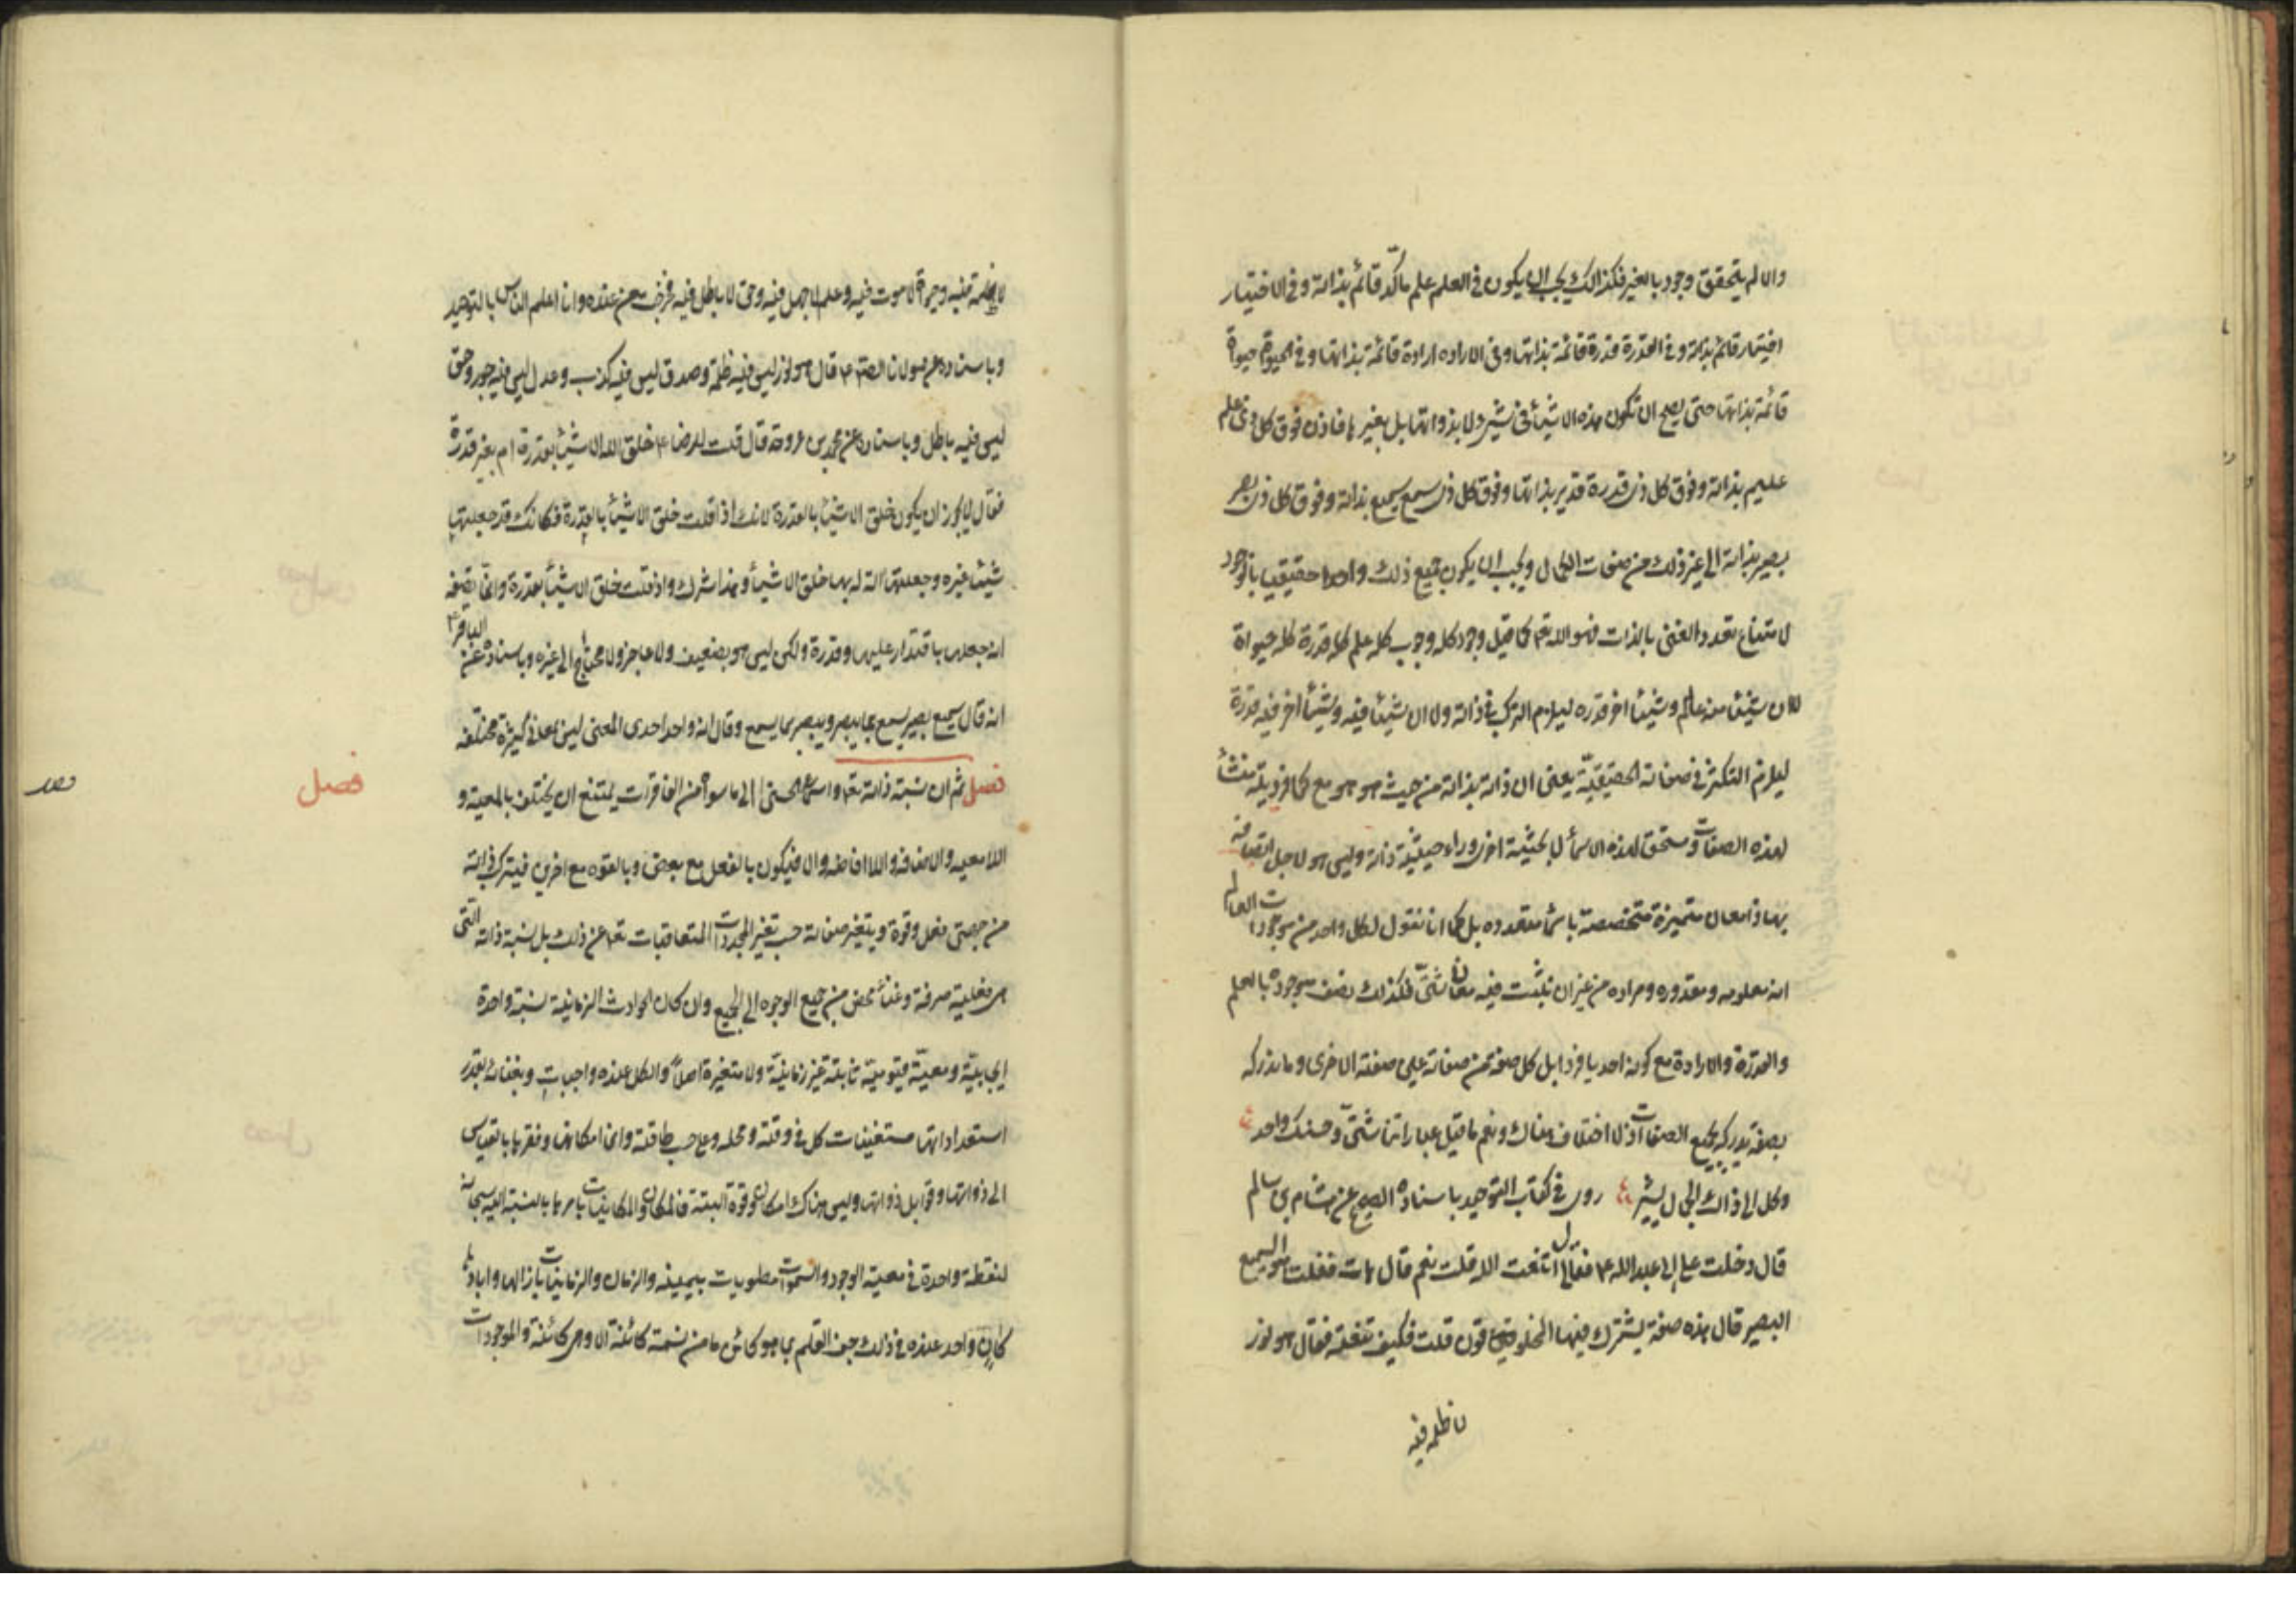 والا لم يتحقق وجود بالغير فكذالك يجب ان يكون فى العلم علم متأكد قائم بذاته وفى الاختيار
اختيار قائم بذاته وفى القدرة قدرة قائمة بذاتها وفى الاراده ارادة قائمة بذاتها وفى الحيوة حيوة
قائمة بذاتها حتى يصح ان تكون هذه الاشيأ فى شئ لا بذواتها بل بغيرها فاذن فوق كل ذى علم
عليم بذاته وفوق كل ذى قدرة قدير بذاتها وفوق كل ذى سمع سميع بذاته وفوق كل ذى بصر
بصير بذاته الى غير ذلك من صفات الكمال ويجب ان يكون جميع ذلك واحدا حقيقيا بالوجود
لامتناع تعدد الغنى بالذات فهو الله تعم كما قيل وجود كله وجوب كله علم كله قدرة كله حيواة
لا ان شيئا منه علم وشيئا اخر قدره ليلزم التركب فى ذاته ولا ان شيئا فيه علم وشيئا اخر فيه قدرة
ليلزم التكثر فى صفاته الحقيقيّة يعنى ان ذاته بذاته من حيث هو هو مع كمال فرديته منشأ
لهذه الصفات ومستحق لهذه الاسمأ لا بحيثية اخرى وراء حيثية ذاته وليس هو لاجل اتصافه
بها ذا معان متميزة متخصصة باسمأ متعدده بل كما انا نقول لكل واحد من موجودات العالم
انه معلومه ومقدوره ومراده من غير ان نثبت فيه معان شتّى فكذلك نصف موجوده بالعلم
والقدرة والارادة مع كونه احديا فردا بل كل صفة من صفاته عين صفته الاخرى وما يدركه
بصفة يدركه بجميع الصفات اذ لا اختلاف هناك ونعم ما قيل عباراتنا شتّى وحسنك واحد
وكل الى ذاك الجمال يشير روى فى كتاب التوحيد باسناده الصحيح عن هشام بن سالم
قال دخلت على ابى عبدالله ع فقال لى اتنعت الله قلت نعم قال هات فقلت هو السميع
البصير قال هذه صفة يشترك فيها المخلوقون قلت فكيف تنعته فقال هو نور
لا ظلمه فيه
لا ظلمة فيه وحيوة لا موت فيه وعلم لا جهل فيه وحق لا باطل فيه فخرجت من عنده وانا اعلم الناس بالتوحيد
وباسناده عن مولانا الصادق ع قال هو نور ليس فيه ظلمة وصدق ليس فيه كذب وعدل ليس فيه جور وحق
ليس فيه باطل وباسناده عن محمد بن عروة قال قلت للرضا ع خلق الله الاشيأ بقدرة ام بغير قدرة
فقال لا يجوز ان يكون خلق الاشيأ بالقدرة لانك اذا قلت خلق الاشيأ بالقدرة فكانك قد جعلتها
شيئا غيره وجعلتها الة له بها خلق الاشيأ وهذا شرك واذ قلت خلق الاشيأ بقدرة وانما تصفه
انه جعلها باقتدار عليها وقدرة ولكن ليس هو بضعيف ولا عاجز ولا محتاج الى غيره وباسناده عن الباقر ع
انه قال سميع بصير يسمع بما يبصر ويبصر بما يسمع وقال انه واحد احدى المعنى ليس بمعانى كثيرة مختلفه
فصل ثم ان نسبة ذاته تعم واسمائه الحسنى الى ما سواه من الفاقرات يمتنع ان يختلف بالمعية و
فصل
اللا معيه والاضافه واللا اضافه والا فيكون بالفعل مع بعض وبالقوه مع اخرين فيتركب ذاته
من جهتى فعل وقوة ويتغير صفاته حسب تغير المتجددات المتعاقبات تعم عن ذلك بل نسبة ذاته التى
هى فعلية صرفة وغنأ محض من جميع الوجوه الى الجميع وان كان الحوادث الزمانية نسبة واحدة
ايجابيّة ومعيّة قيّوميّة ثابتة غير زمانيّة ولا متغيرة اصلا والكل عنده واجبات وبغنائه بقدر
استعداداتها مستغنيات كل فى وقته ومحله وعلى حسب طاقته وانما امكانها وفقرها بالقياس
الى ذواتها وقوابل ذواتها وليس هناك امكان وقوة البتة فالمكان والمكانيات باسرها بالنسبة اليه سبحانه
كنقطة واحدة فى معية الوجود والسموات مطويات بيمينه والزمان والزمانيات بازالها وابادها
كان واحد عنده فى ذلك جف القلم بما هو كائن ما من نسمة كائنة الا وهى كائنة والموجودات